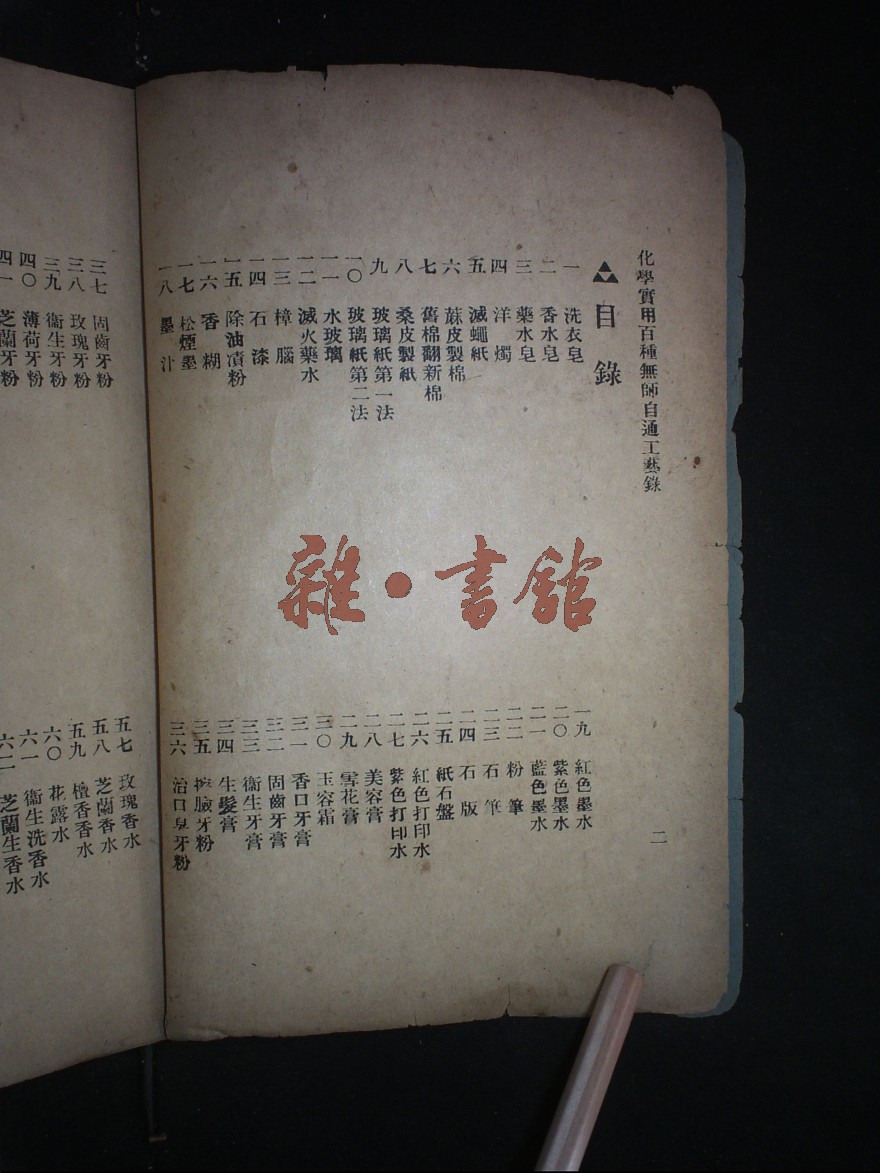 化學實用百種無師自通工藝錄
目錄
一 洗衣皂
二 香水皂
三 藥水皂
四 洋燭
五 滅蠅紙
六 蔴皮製棉
七 舊棉翻新棉
八 桑皮製紙
九 玻璃紙第一法
一〇 玻璃紙第二法
一一 水玻璃
一二 滅火藥水
一三 樟腦
一四 石漆
一五 除油漬粉
一六 香糊
一七 松煙墨
一八 墨汁
一九 紅色墨水
二〇 紫色墨水
二一 藍色墨水
二二 粉筆
二三 石筆
二四 石版
二五 紙石盤
二六 紅色打印水
二七 紫色打印水
二八 美容膏
二九 雪花膏
三〇 玉容霜
三一 香口牙膏
三二 固齒牙膏
三三 衞生牙膏
三四 生髮膏
三五 擦臉牙粉
三六 治口臭牙粉
二
三七 固齒牙粉
三八 玫瑰牙粉
三九 衞生牙粉
四〇 薄荷牙粉
四一 芝蘭牙粉
五七 玫瑰香水
五八 芝蘭香水
五九 檀香香水
六〇 花露水
六一 衞生洗香水
六二 芝蘭生香水
雜·書館